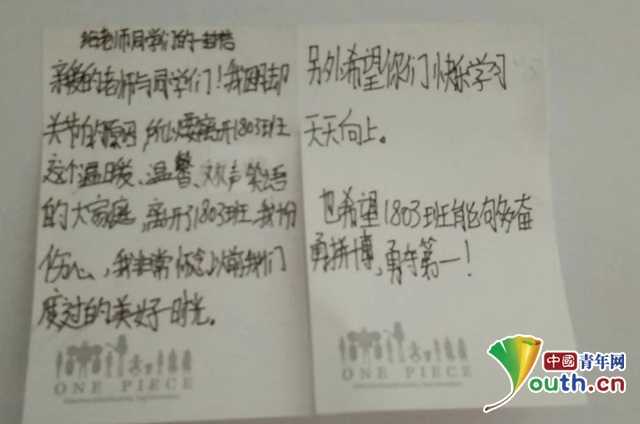 给老师同学们的一封信
亲爱的老师与同学们！我因却
关节的原因，所以要离开1803班
这个温暖、温馨、欢声笑语
的大家庭，离开了1803班，我十分
伤心，我非常怀念以前我们
度过的美好时光。
ONE PIECE
另外希望你们快乐学习
天天向上。
也希望1803班能向够奋
勇拼博，勇夺第一！
ONE PIECE
中國青年网
Youth.cn